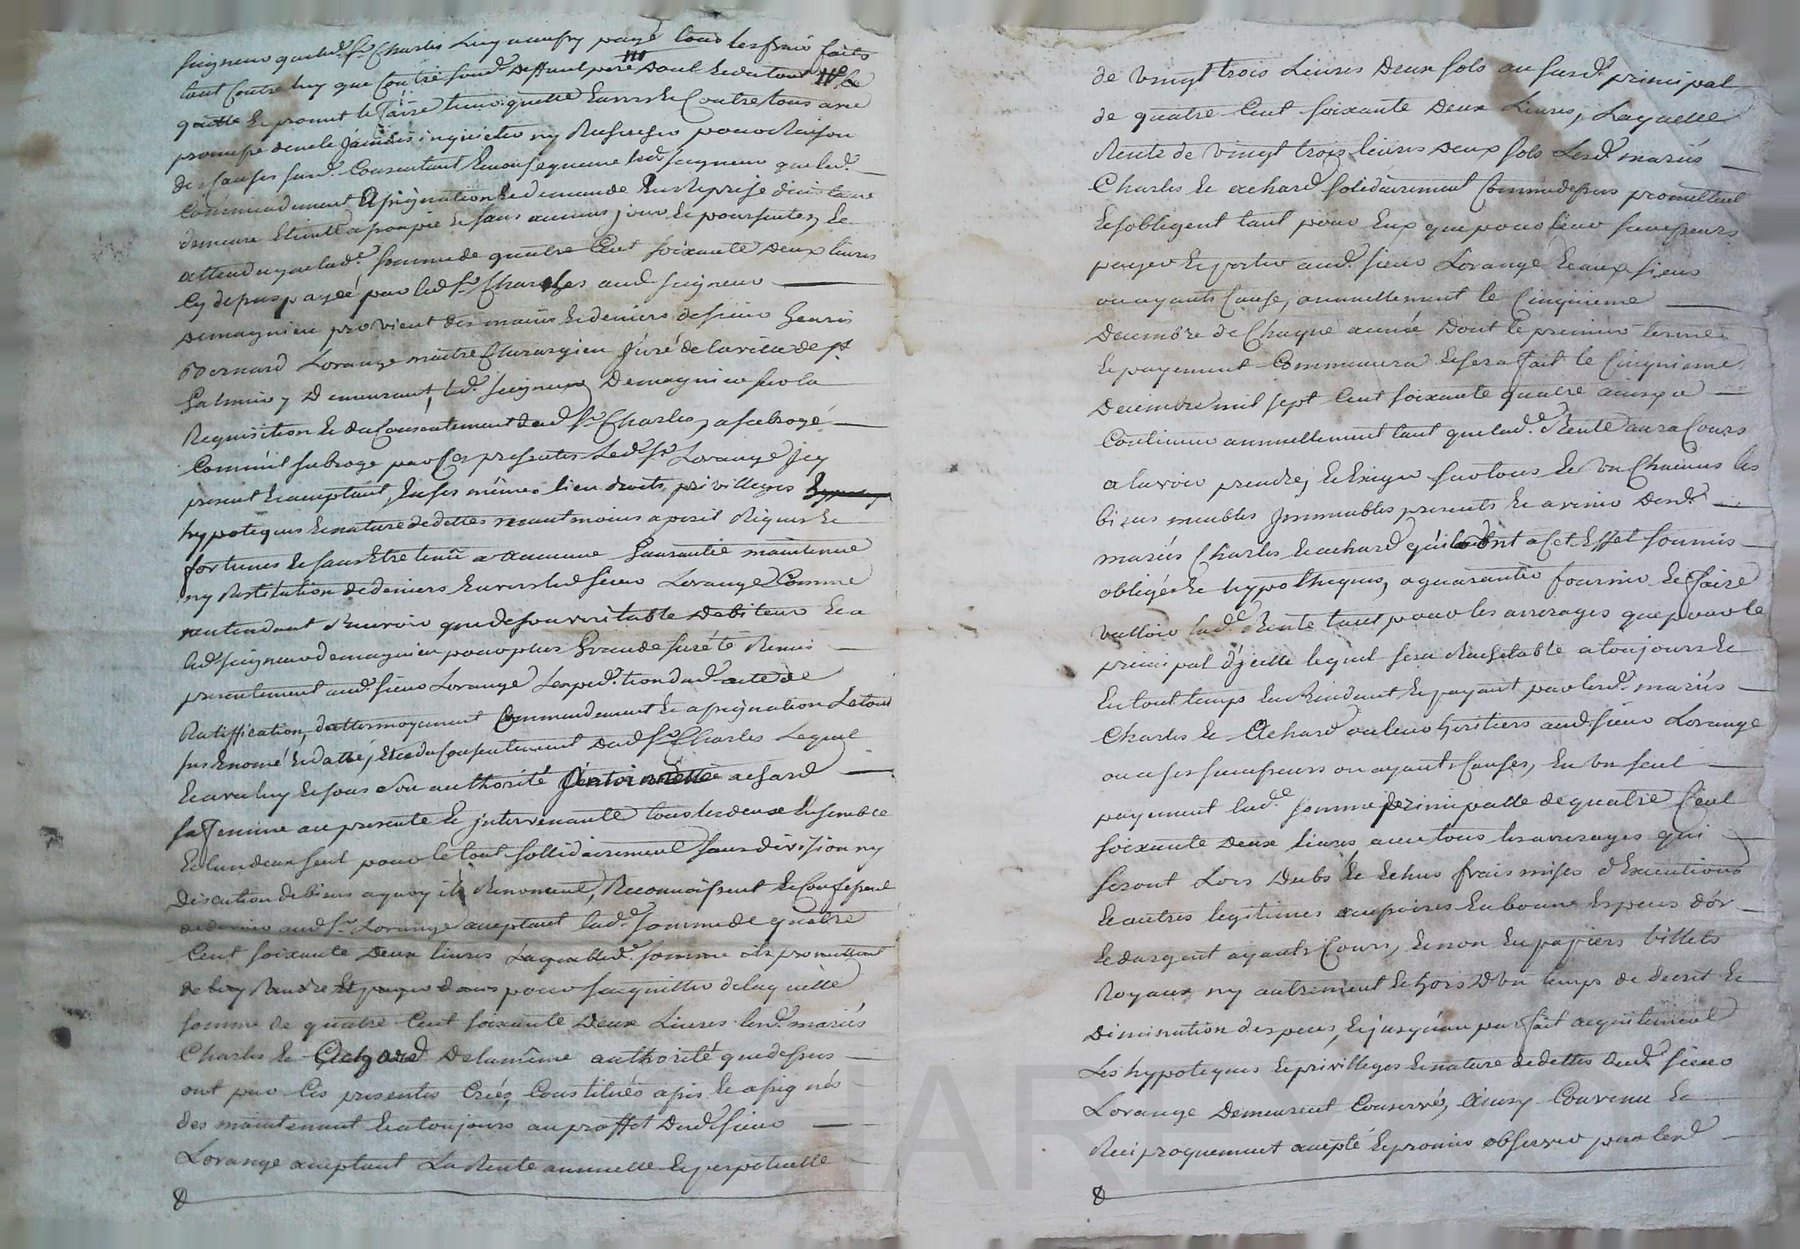 seigneur que led. Sr Charles luy aussy payé tous les frais faits
tant contre luy que contre sond. deffunt père dont
quitte et promet le faire tenir quitte envers et contre tous avec
promesse de ne le jamais inquietter ny rechercher pour raison
des causes susd. consentant led. seigneur que led.
commandement assignation et demande en reprise d'instance
demeure éteinte assoupie et sans aucuns jour et poursuites, et
attendu que lad. somme de quatre cent soixante deux livres
cy dessus payée par led. Sr Charles aud. seigneur
Demagnieu provient des mains et deniers de sieur
Bernard Lorange maitre chirurgien juré de la ville de St
Galmier y demeurant, led. seigneur Demagnieu sur la
requisition et du consentement dud. Sr Charles, a subrogé
comme il subroge par ces presentes led. Sr Lorange icy
present et acceptant, en ses mêmes lieu droits privilleges
hypoteques et nature de dettes neantmoins a peril risques et
fortunes et sans etre tenu a aucune garantie maintenue
ny restitution de deniers envers led. sieur Lorange comme
n'entendant recevoir que de son veritable debiteur et a
led. seigneur Demagnieu pour plus grande sureté remis
presentement aud. sieur Lorange l'expedition dud. acte de
ratiffication, d'attermoyement commandement et assignation le tout
sus enoncé et datté, et ce du consentement dud. Sr Charles lequel
et avec luy et sous son authorité Antoinette achard
sa femme acy presente et intervenante tous les deux ensemble
et l'un d'eux seul pour le tout sollidairement sans division ny
discution de biens a quoy ils renoncent, reconnoissent et confessent
de devoir aud. Sr Lorange acceptant lad. somme de quatre
cent soixante deux livres laquelle somme ils promettent
de luy rendre et payer pour s'aquitter de laquelle
somme de quatre cent soixante deux livres lesd. mariés
Charles et Achard de la même authorité que dessus
ont par ces presentes créé, constitués assis et assignés
des maintenant et a toujours au proffit dud. sieur
Lorange acceptant la rente annuelle et perpetuelle
de vingt trois livres deux sols au susd. principal
de quatre cent soixante deux livres, laquelle
rente de vingt trois livres deux sols lesd. mariés
Charles et achard solidairement comme dessus promettent
et s'obligent tant pour eux que pour leur successeurs
payer et porter aud. sieur Lorange et aux siens
ou ayants cause, annuellement le cinquieme
decembre de chaque année dont le premier terme
et payement commencera et sera fait le cinquieme
decembre mil sept cent soixante quatre ainsy a
continuer annuellement tant que lad. rente aura cours
a la voir prendre, et exiger sur tous et un chacuns les
biens meubles immeubles presents et avenir desd.
mariés Charles et achard qu'ils ont a cet effet soumis
obligés et hypothequés, a guarantir fournir et faire
valloir lad. rente tant pour les arrerages que pour le
principal d'jcelle lequel sera rachetable a toujours et
en tout temps en rendant et payant par lesd. mariés
Charles et Achard ou leur heritiers aud. sieur Lorange
ou a ses successeurs ou ayants causes, en un seul
payement lad. somme principalle de quatre cent
soixante deux livres avec tous les arrerages qui
seront lors dubs et echus frais mises d'executions
et autres legitimes accessoires en bonne especes d'or
et d'argent ayants cours, et non en papiers billets
royaux ny autrement et hors d'un temps de decrit et
diminution d'especes, et jusqu'au parfait acquitement
les hypoteques et privilleges et nature de dettes dud. sieur
Lorange demeurent conservés, ainsy convenu et
reciproquement accepté et promis observer par lesd.
CHARLY.RO